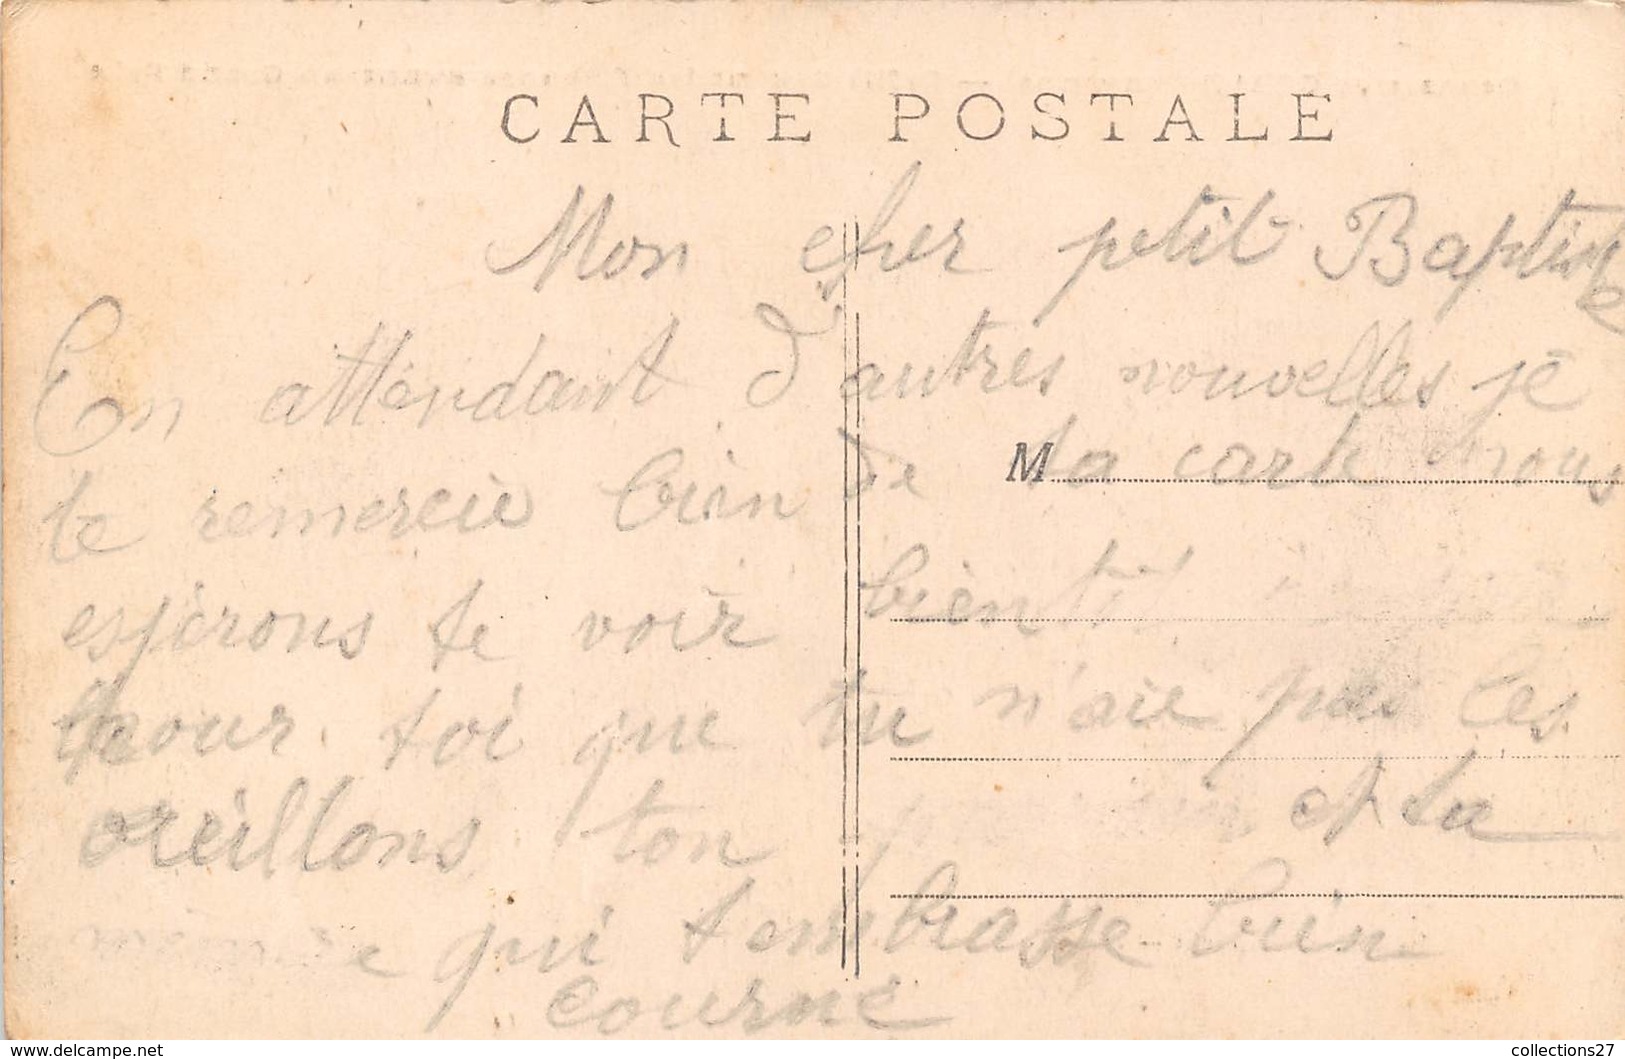 CARTE POSTALE
Mon cher petit Baptiste
En attendant d'autres nouvelles je
te remercie bien de ta carte nous
M
esperons te voir bient
pour toi que tu n'aie pas les
oreillons ton et ta
qui t'embrasse bien
courne
collections27